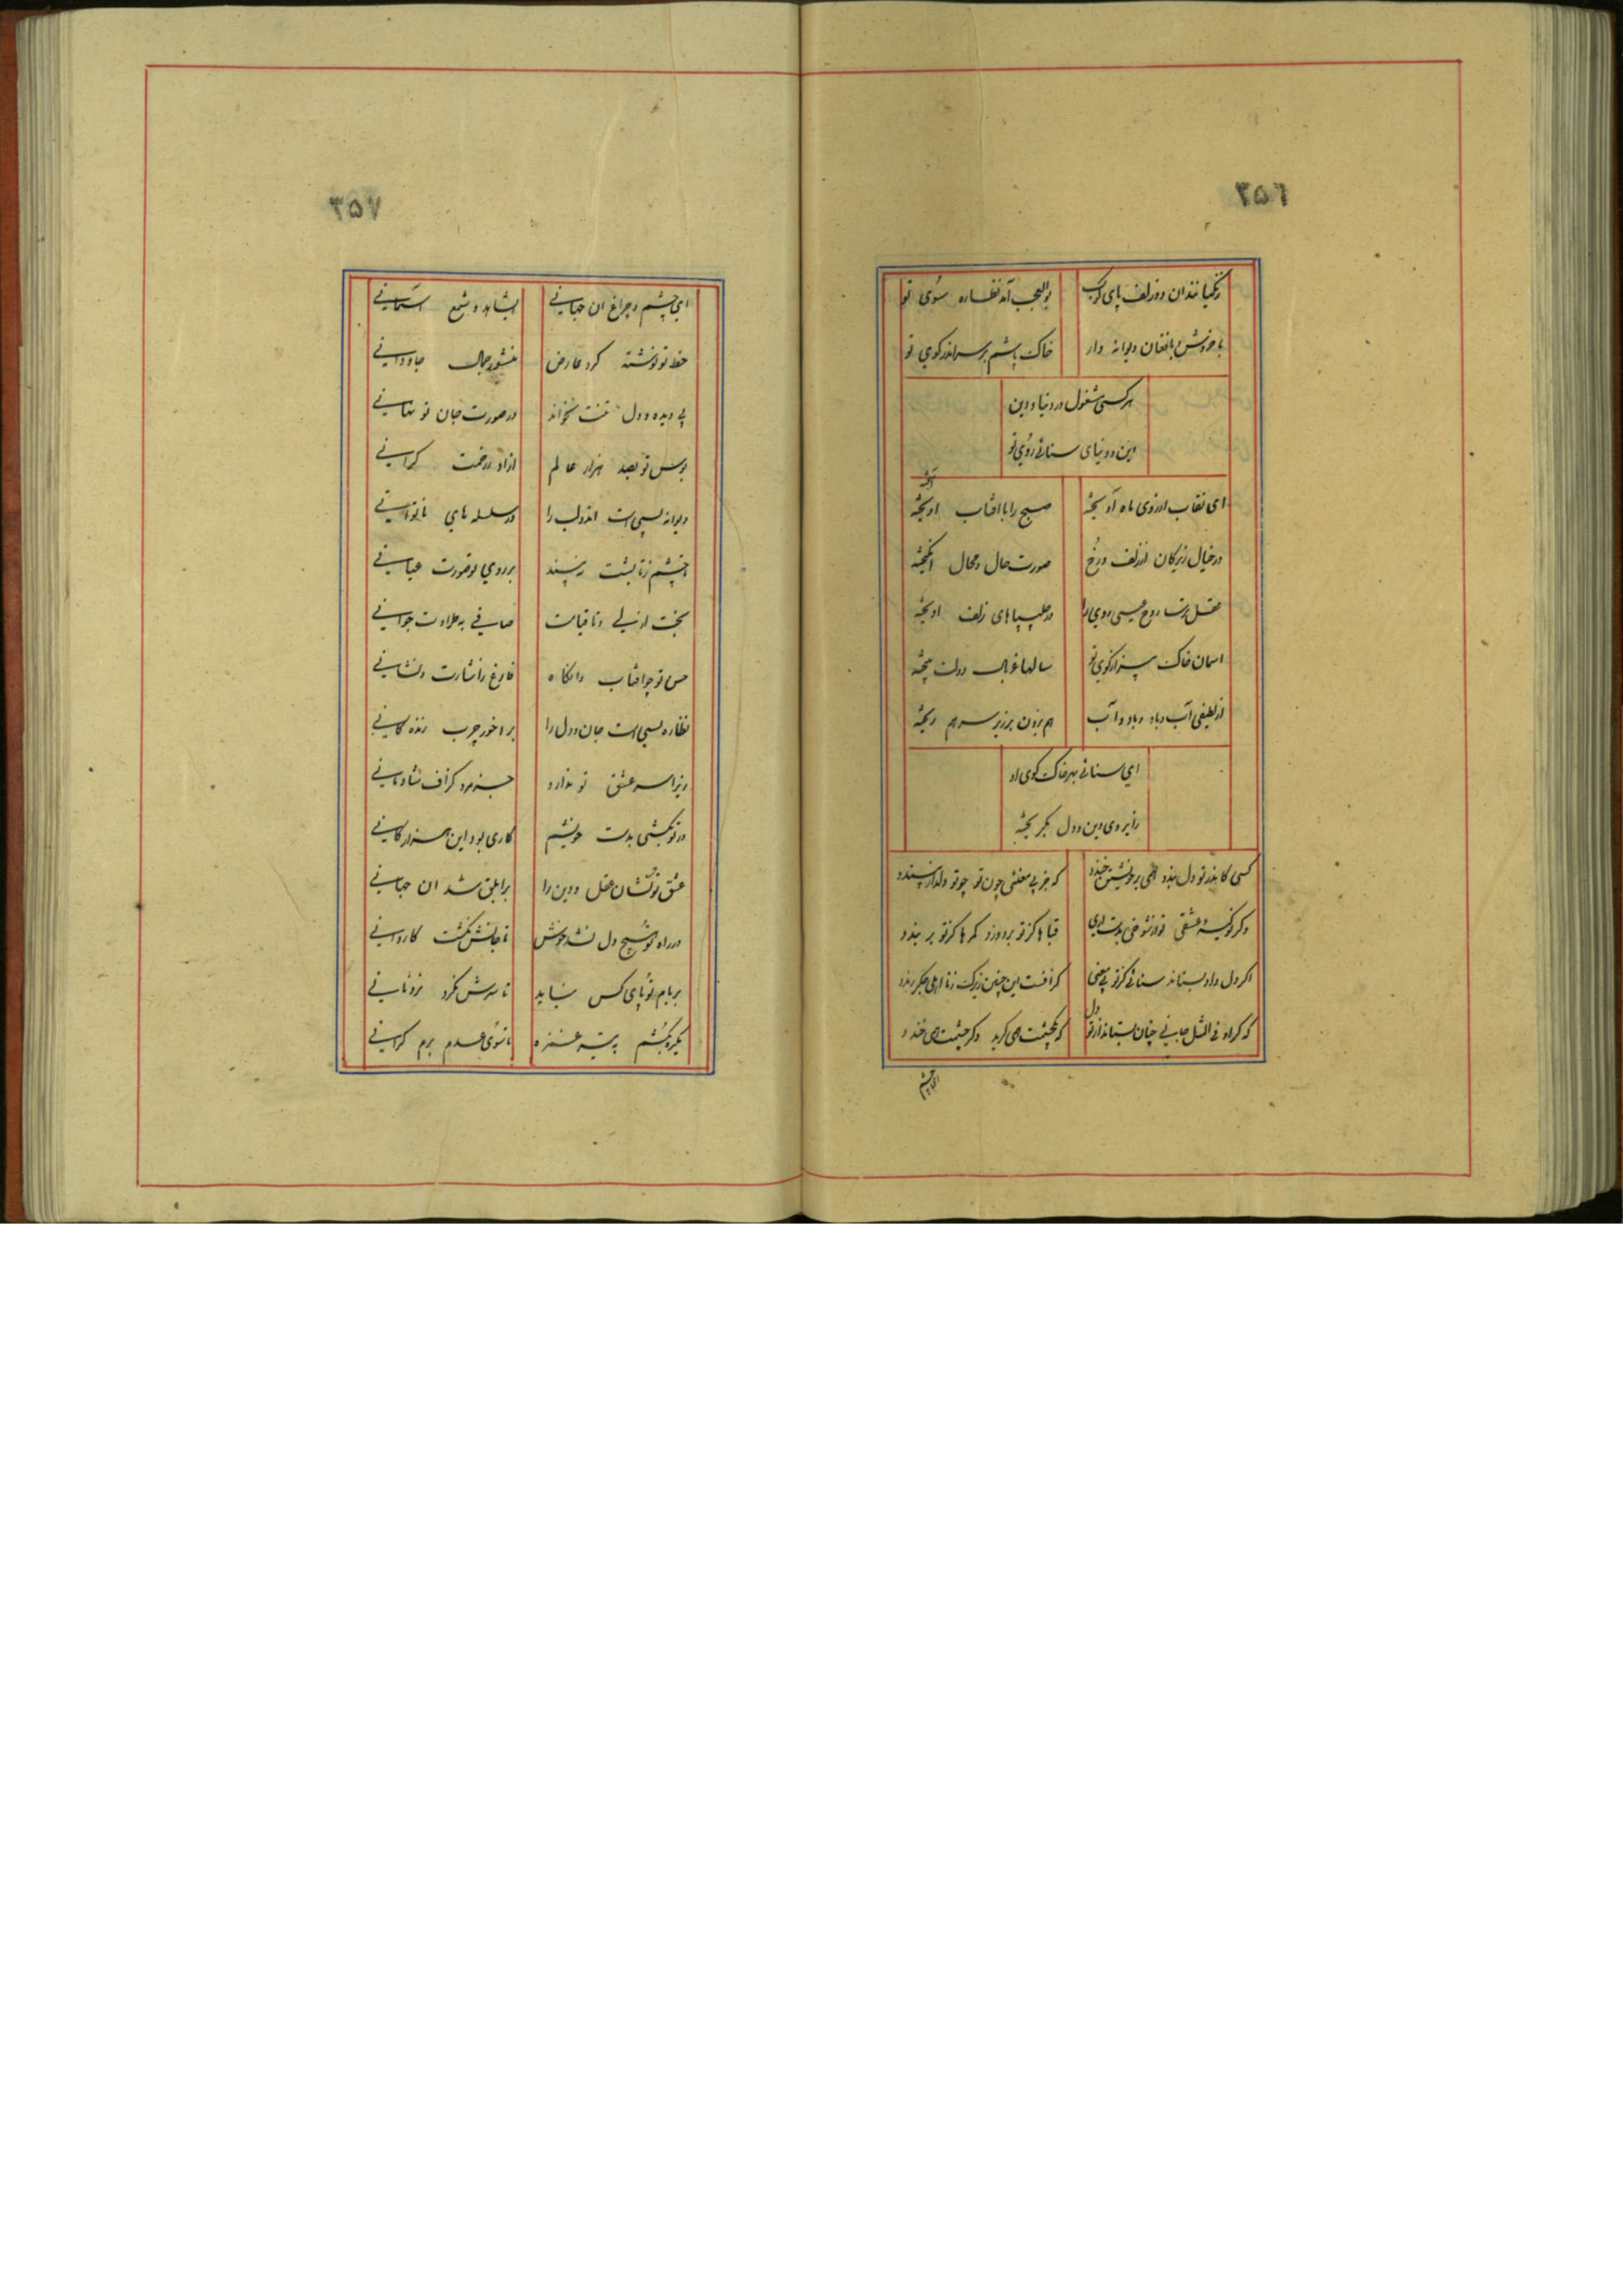 ۳۵۶
زنگیانند آن دو زلف پای کوب بوالعجب آمد نظاره سوی تو
با خروش و با فغان دیوانه وار خاک پاشم بر سر اندر کوی تو
هر کسی مشغول در دنیا و دین
دین و دنیای سنائی روی تو
ای نقاب از روی ماه آویخته صبح را با افتاب اویخته
در خیال زیرکان از زلف و رخ صورت حال و محال انگیخته
عقل ترسا روح عیسی روی را در چلیپاهای زلف اویخته
اسمان خاک سر کوی تو سالها غربال دولت بیخته
از لطیفی آب و باد و باد و آب هم برون بر زیر سر هم ریخته
ای سنائی بهر خاک کوی او
رابروی دین و دل بگریخته
کسی کاندر تو دل بندد همی بر خویشتن خندد که جز بی معنئی چون تو چو تو دلدار نپسندد
وگر نو کیسهٔ عشقی تو از شوخی بدست اری قباها کز تو بر دوزد کمرها کز تو بر بندد
اگر دل داد بستاند سنائی کز تو بی معنی گزافست این چنین زیرک زنا اهلی جگر رندد
که گر او فی المثل جانی چنان بستاند از تو دل که گر بچشمت همی گرید وگر چشمت همی خندد
ای چشم
۳۵۷
ای چشم و چراغ ان جهانی ایشاهد و شمع آسمانی
خط تو نوشته گرد عارض منشور جمال جاودانی
بی دیده و دل تنت نخواند در صورت جان تو نهانی
بوس تو بصد هزار عالم ازاد رفت گرانی
دیوانه بسی است اندو لب را در سلسله های ناتوانی
از چشم زتابشت نه بینند بر روی تو صورت عیانی
بخت ازلی و تا قیامت صافی به طراوت جوانی
حسن تو چو افتاب وانگاه فارغ زاشارت و نشانی
نظاره بسی است جان و دل را بر اخور چرب زندگانی
زیرا سر عشق تو ندارد جز مرد گزاف شادمانی
ور تو بکشی بدست خویشم کاری بود این هزار گانی
عشق تو کشان عقل و دین را بر ابلق شد ان جهانی
در راه تو هیچ دل نشد خوش تا جانش نگشت کاروانی
بر بام تو پای کس نیاید تا سرش نکرد نردبانی
یکره بکشم به تیر غمزه تا سوی عدم برم گرانی